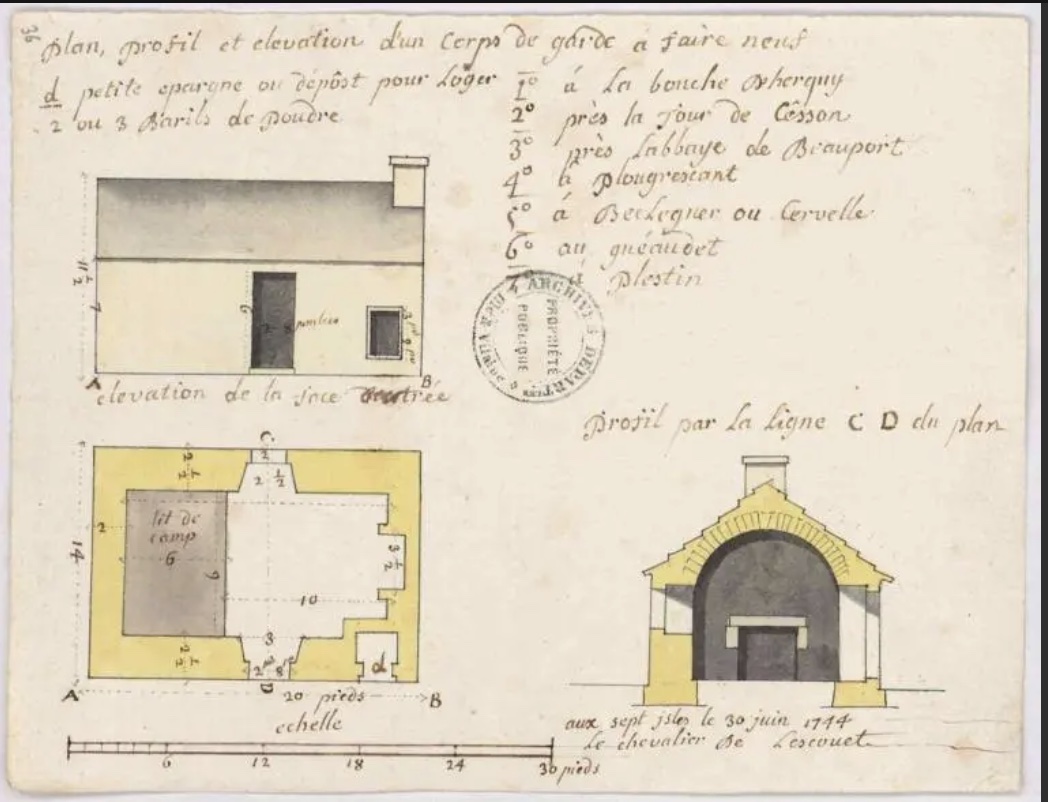 36
Plan, profil et elevation d'un Corps de garde à faire neuf
d petite epargne ou dépôst pour Loger
2 ou 3 Barils de Poudre
1° à La bouche Dherquy
2° près la Tour de Cêsson
3° près Labbaye de Beauport
4° à Plougrescant
5° à BecLegner ou Cervelle
6° au guéaudet
7° à Plestin
ARCHIVES DÉPART
PROPRIÉTÉ
PUBLIQUE
11 1/2
7
6
2 8 pouces
3 pi
2 pi
A B
elevation de la face
Profil par La Ligne C D du plan
C
2
2 1/2
2 1/2
lit de
camp
6
9
2
14
3 1/2
10
3
2 1/2
2 pi 8 po
d
D
A 20 pieds B
echelle
6 12 18 24 30 pieds
aux sept isles le 30 juin 1744
Le chevalier De Lescouet